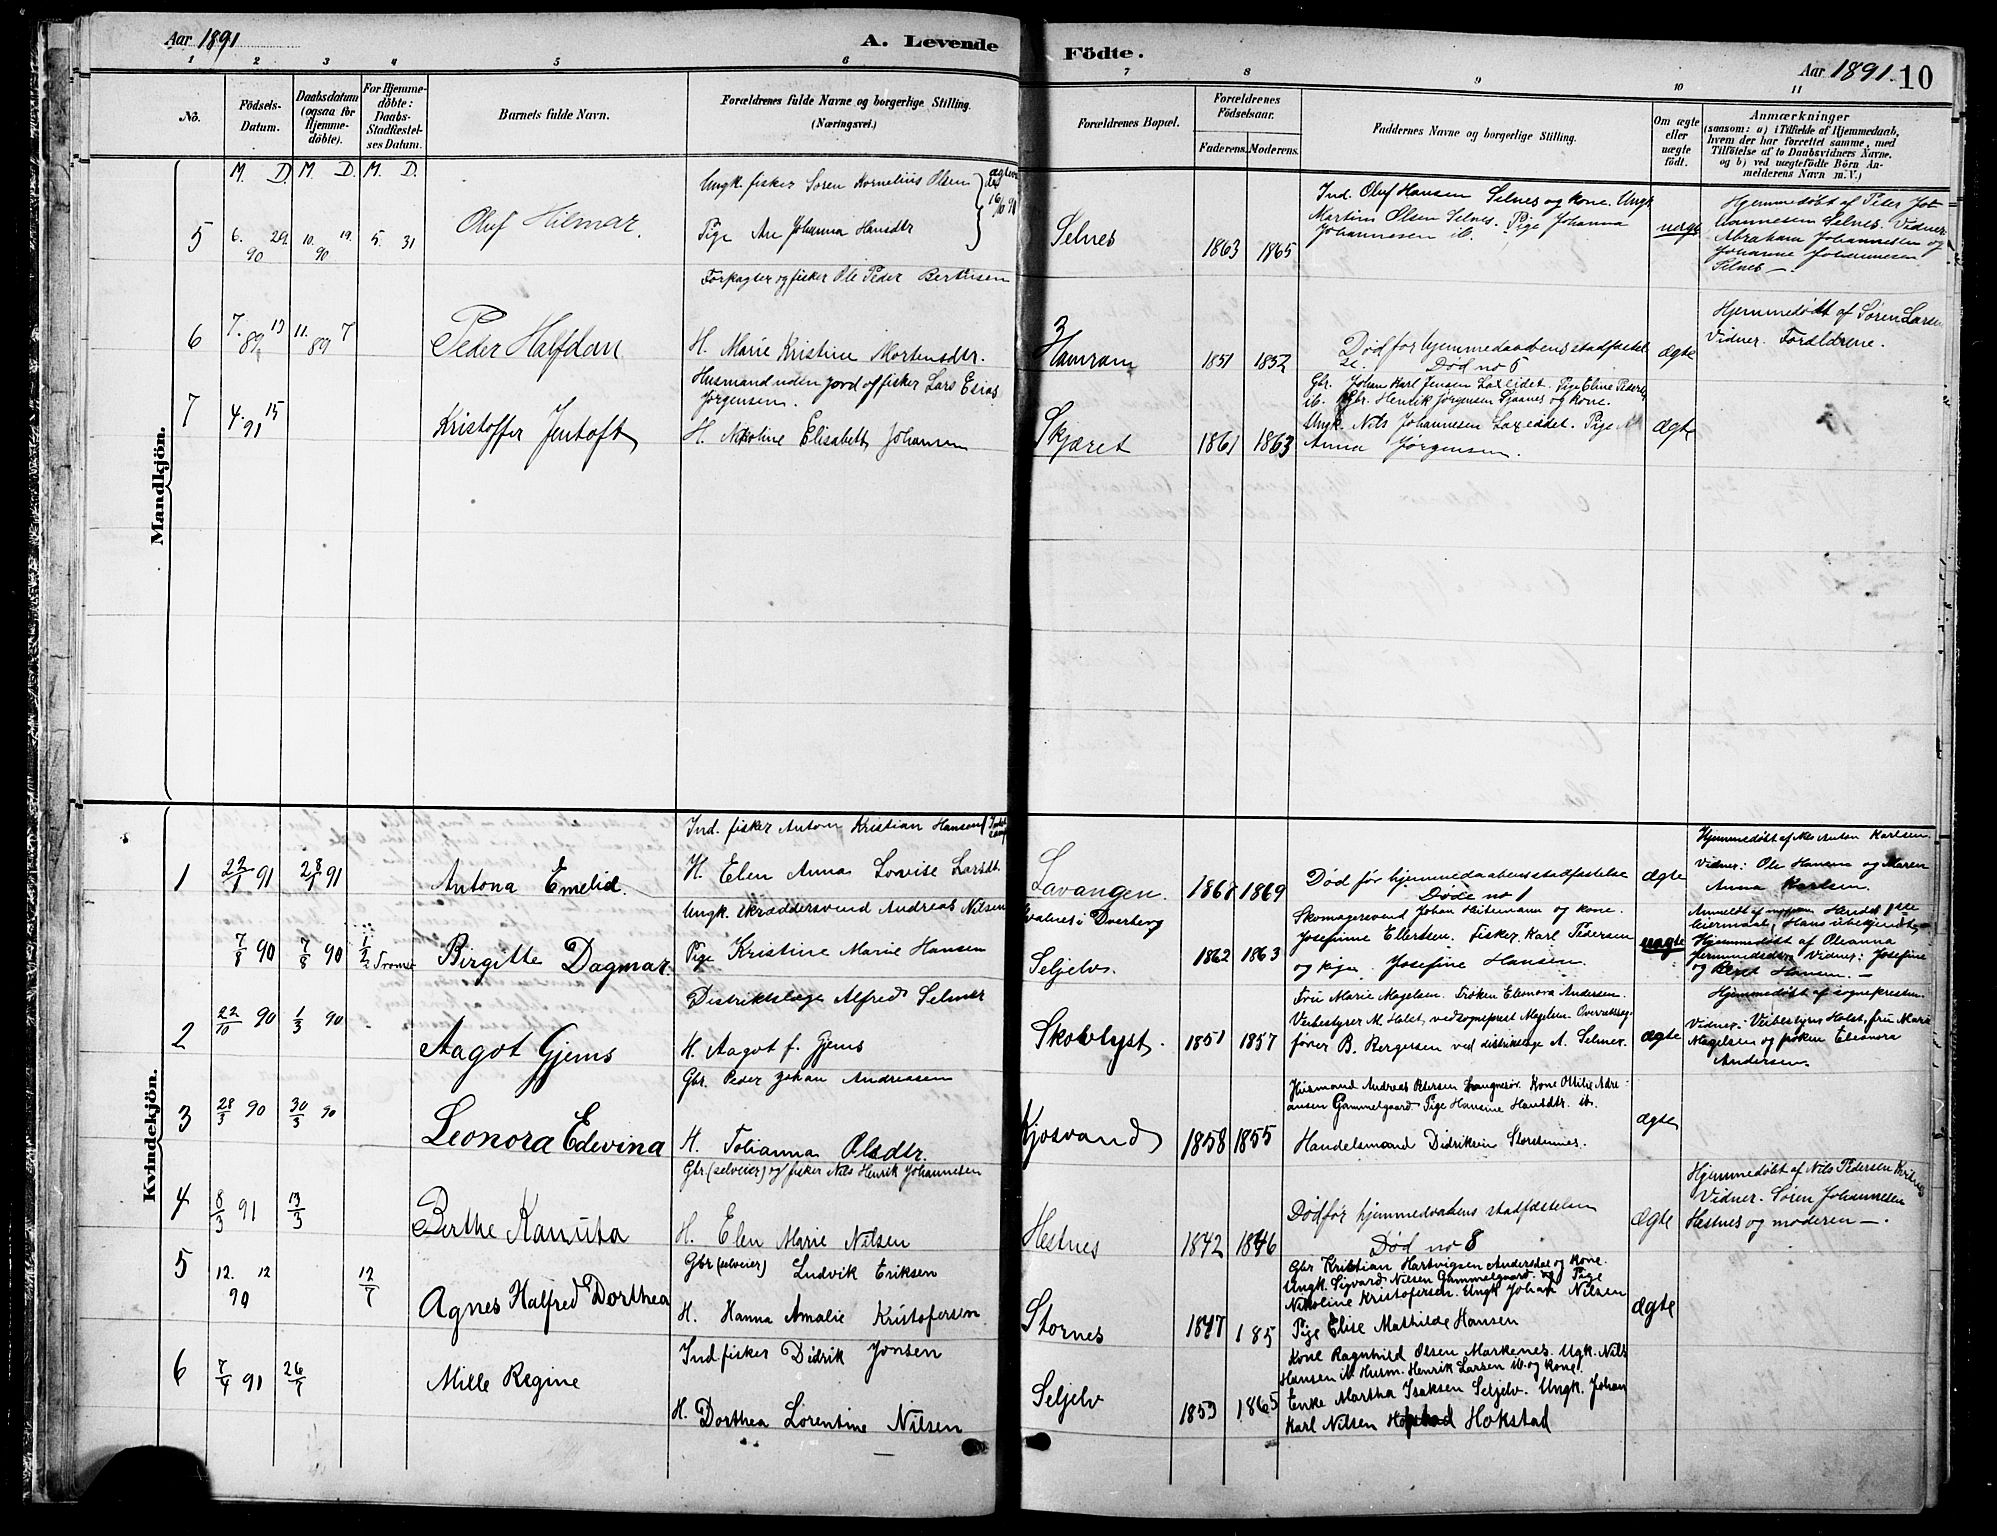 Aar 1891
A. Levende
Födte.
Aar 1891. 10
1 2 3 4 5 6 7 8 9 10 11
No.
Födsels-
Datum.
Daabsdatum
(ogsaa for
Hjemme-
döbte).
For Hjemme-
döbte:
Daabs-
Stadfæstel-
ses Datum.
Barnets fulde Navn.
Forældrenes fulde Navne og borgerlige Stilling.
(Næringsvei.)
Forældrenes Bopæl.
Forældrenes
Födselsaar.
Faderens. Moderens.
Faddernes Navne og borgerlige Stilling.
Om ægte
eller
uægte
födt.
Anmærkninger
(saasom: a) i Tilfælde af Hjemmedaab,
hvem der har forrettet samme, med
Tilföielse af to Daabsvidners Navne,
og b) ved uægtefödte Börn An-
melderens Navn m. V.)
M. D. M. D. M. D.
Mandkjön.
5
6. 29.
90
10. 19.
90
5. 31
Oluf Hilmar.
Ungk. fisker Søren Kornelius Olsen
Pige Ane Johanna Hansdtr
16/10 90
Selnes
1863 1865
Ind. Oluf Hansen Selnes og kone. Ungk
Martin Olsen Selnes. Pige Johanna
Johannesen ib.
uægte
Hjemmedøbt af Peder Jo-
hannesen Selnes. Vidner
Abraham Johannesen og
Johanne Johannesen
Selnes —
6
7. 13
89
11. 7
89
Peder Halfdan
Forpagter og fisker Ole Peder Berthisen
H. Marie Kristine Mortensdtr.
3
Hamran
1851 1852
Død før hjemmedaabens stadfæstel-
se. Død no 5
ægte
Hjemmedøbt af Søren Larsen
Vidner. Forældrene.
7
4. 15
91
Kristoffer Jentoft
Husmand uden jord og fisker Lars Elias
Jørgensen.
H. Nikoline Elisabeth Johansen
Skjæret
1861 1863
Gbr. Johan Karl Jensen Laxeidet. Pige Eline Peders
ib. Gbr. Henrik Jørgensen Sjaanes og kone.
Ungk. Nils Johannesen Laxeidet. Pige
Anna Jørgensen.
ægte
Kvindekjön.
1
22/1 91
28/1 91
Antona Emelid.
Ind. fisker Anton Kristian Hansen
H. Elen Anna Lovise Larsdt.
Lavangen.
1868 1869
Død før hjemmedaabens stadfæstelse
Døde no 1
ægte
Hjemmedøbt af Nils Anton Karlsen
Vidner: Ole Hansen og Maren
Anna Karlsen.
7/8 90
7/8 90
1/2 Tromsø
Birgitte Dagmar.
Ungk. skræddersvend Andreas Nilsen
Pige Kristine Marie Hansen
i Dverberg
Seljelv.
1862 1863
Skomagersvend Johan Heitmann og kone
Josefine Ellertsen. Fisker Karl Pedersen
og pige Josefine Hansen.
uægte
Anmeldt af
leiermaal, Hans ubekjendt
Hjemmedøbt af Oleanna
Vidner: Josefine
og Beret Hansen. —
2
22/10 90
1/3 90
Aagot Gjems
Distriktslæge Alfred Selmer
H. Aagot f. Gjems
Skovlyst.
1851 1857
Fru Marie Magelsen. Frøken Eleonora Andersen.
Veibestyrer M. Holst, ved sognepræst Magelsen. Overretssag-
fører B. Bergersen ved distriktslæge A. Selmer.
ægte
Hjemmedøbt af sognepresten.
Vidner: Veibestyrer Holst, fru Marie
Magelsen og frøken Eleonora
Andersen.
3
28/3 90
30/3 90
Leonora Edevina
Gbr. Peder Johan Andreasen
H. Johanna Olsdtr.
Kjosvand
1858 1855
Husmand Andreas Petersen Langnesør. Kone Ottilie Andre-
ansen Gammelgaard. Pige Hansine Hansdtr. ib.
Handelsmand Didriksen Storstennes.
ægte
4
8/3 91
13/3
Berthe Kanuta
Gbr (selveier) og fisker Nils Henrik Johannesen
H. Elen Marie Nilsen
Hestnes
1842 1846
Død før hjemmedaabens stadfæstelse
Død no 8
ægte
Hjemmedøbt af Nils Pedersen
Vidner. Søren Johannesen
Hestnes og moderen —.
5
12. 12
90
12/7
Agnes Halfred Dorthea
Gbr (selveier) Ludvik Eriksen
H. Hanna Amalie Kristofersen
Stornes
1847 185
Gbr Kristian Hartvigsen Andersdal og kone.
Ungk. Sigvard Nilsen Gammelgaard. og Pige
Nikoline Kristofersen. Ungk Johan Nilsen
Pige Elise Mathilde Hansen
ægte
6
7/4 91
26/7
Mille Regine
Ind fisker Didrik Jonsen
H. Dorthea Lorentine Nilsen
Seljelv
1853 1865
Kone Ragnhild Olsen Markenes. Ugk. Nils
Hansen N. Husm. Henrik Larsen ib og kone
Enke Martha Isaksen Seljelv. Ungk. Johan
Karl Nilsen Hokstad